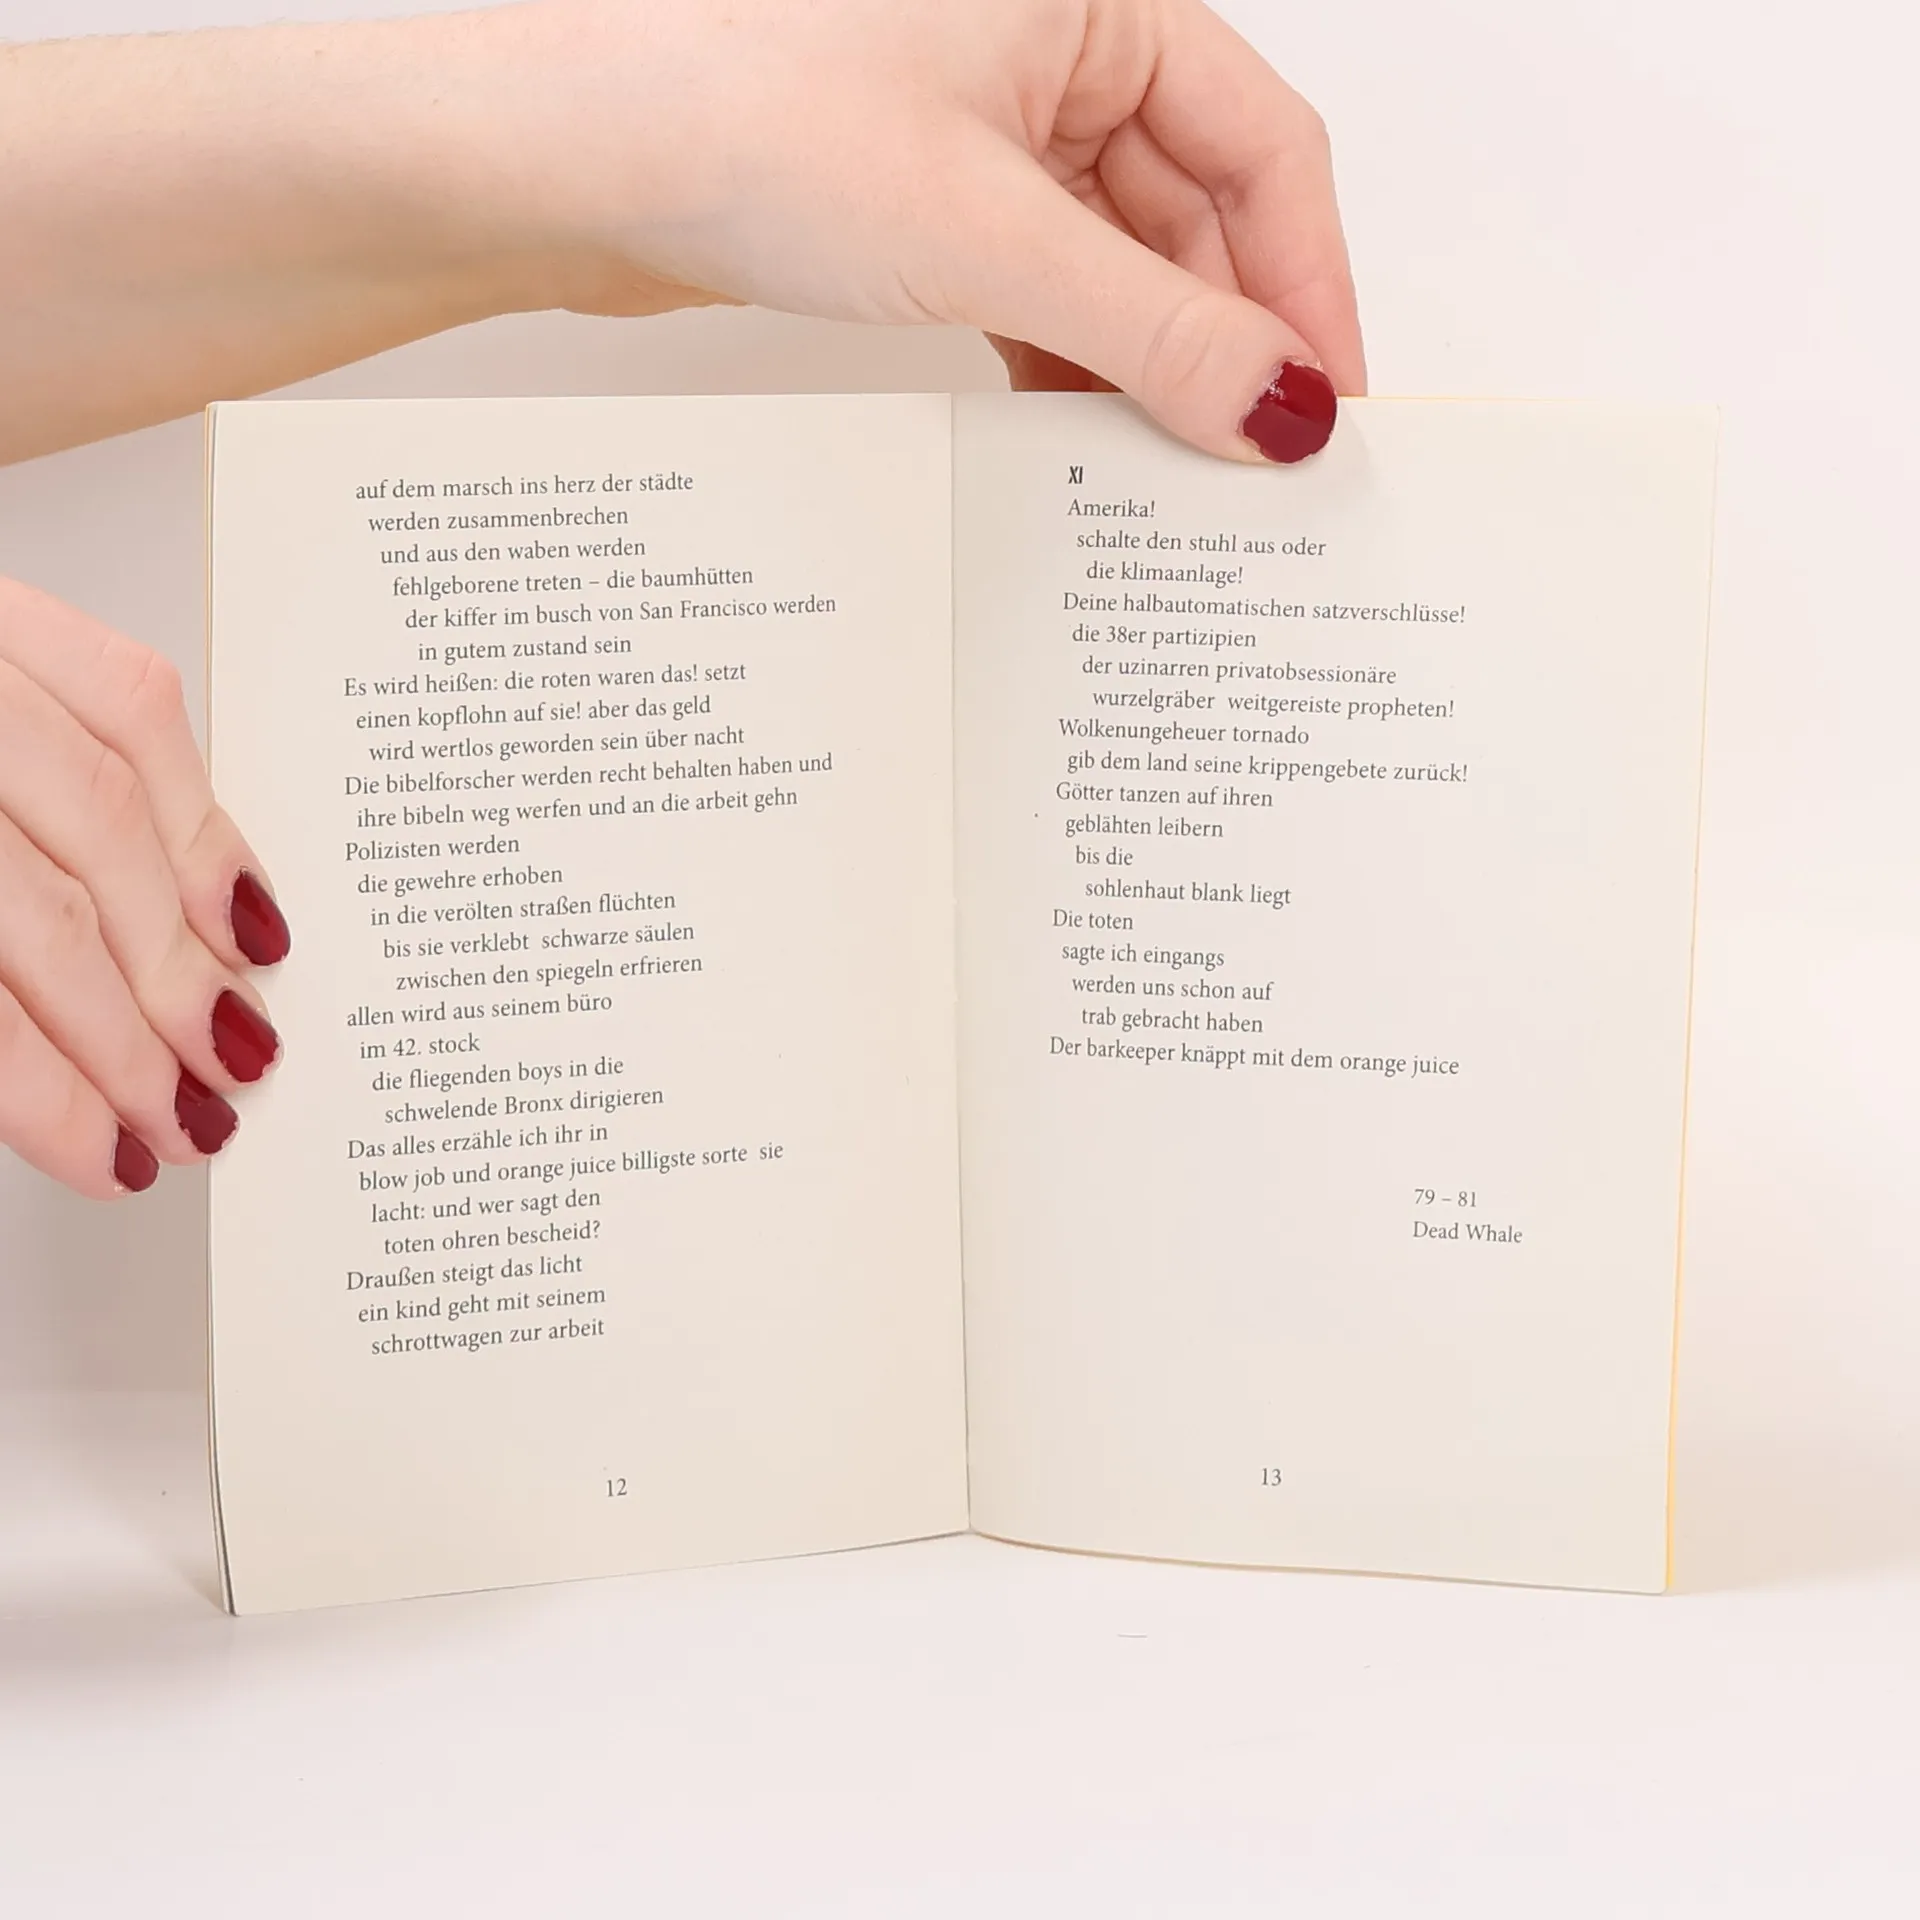 auf dem marsch ins herz der städte
werden zusammenbrechen
und aus den waben werden
fehlgeborene treten – die baumhütten
der kiffer im busch von San Francisco werden
in gutem zustand sein
Es wird heißen: die roten waren das! setzt
einen kopflohn auf sie! aber das geld
wird wertlos geworden sein über nacht
Die bibelforscher werden recht behalten haben und
ihre bibeln weg werfen und an die arbeit gehn
Polizisten werden
die gewehre erhoben
in die verölten straßen flüchten
bis sie verklebt  schwarze säulen
zwischen den spiegeln erfrieren
allen wird aus seinem büro
im 42. stock
die fliegenden boys in die
schwelende Bronx dirigieren
Das alles erzähle ich ihr in
blow job und orange juice billigste sorte  sie
lacht: und wer sagt den
toten ohren bescheid?
Draußen steigt das licht
ein kind geht mit seinem
schrottwagen zur arbeit
12
XI
Amerika!
schalte den stuhl aus oder
die klimaanlage!
Deine halbautomatischen satzverschlüsse!
die 38er partizipien
der uzinarren privatobsessionäre
wurzelgräber  weitgereiste propheten!
Wolkenungeheuer tornado
gib dem land seine krippengebete zurück!
Götter tanzen auf ihren
geblähten leibern
bis die
sohlenhaut blank liegt
Die toten
sagte ich eingangs
werden uns schon auf
trab gebracht haben
Der barkeeper knäppt mit dem orange juice
79 – 81
Dead Whale
13